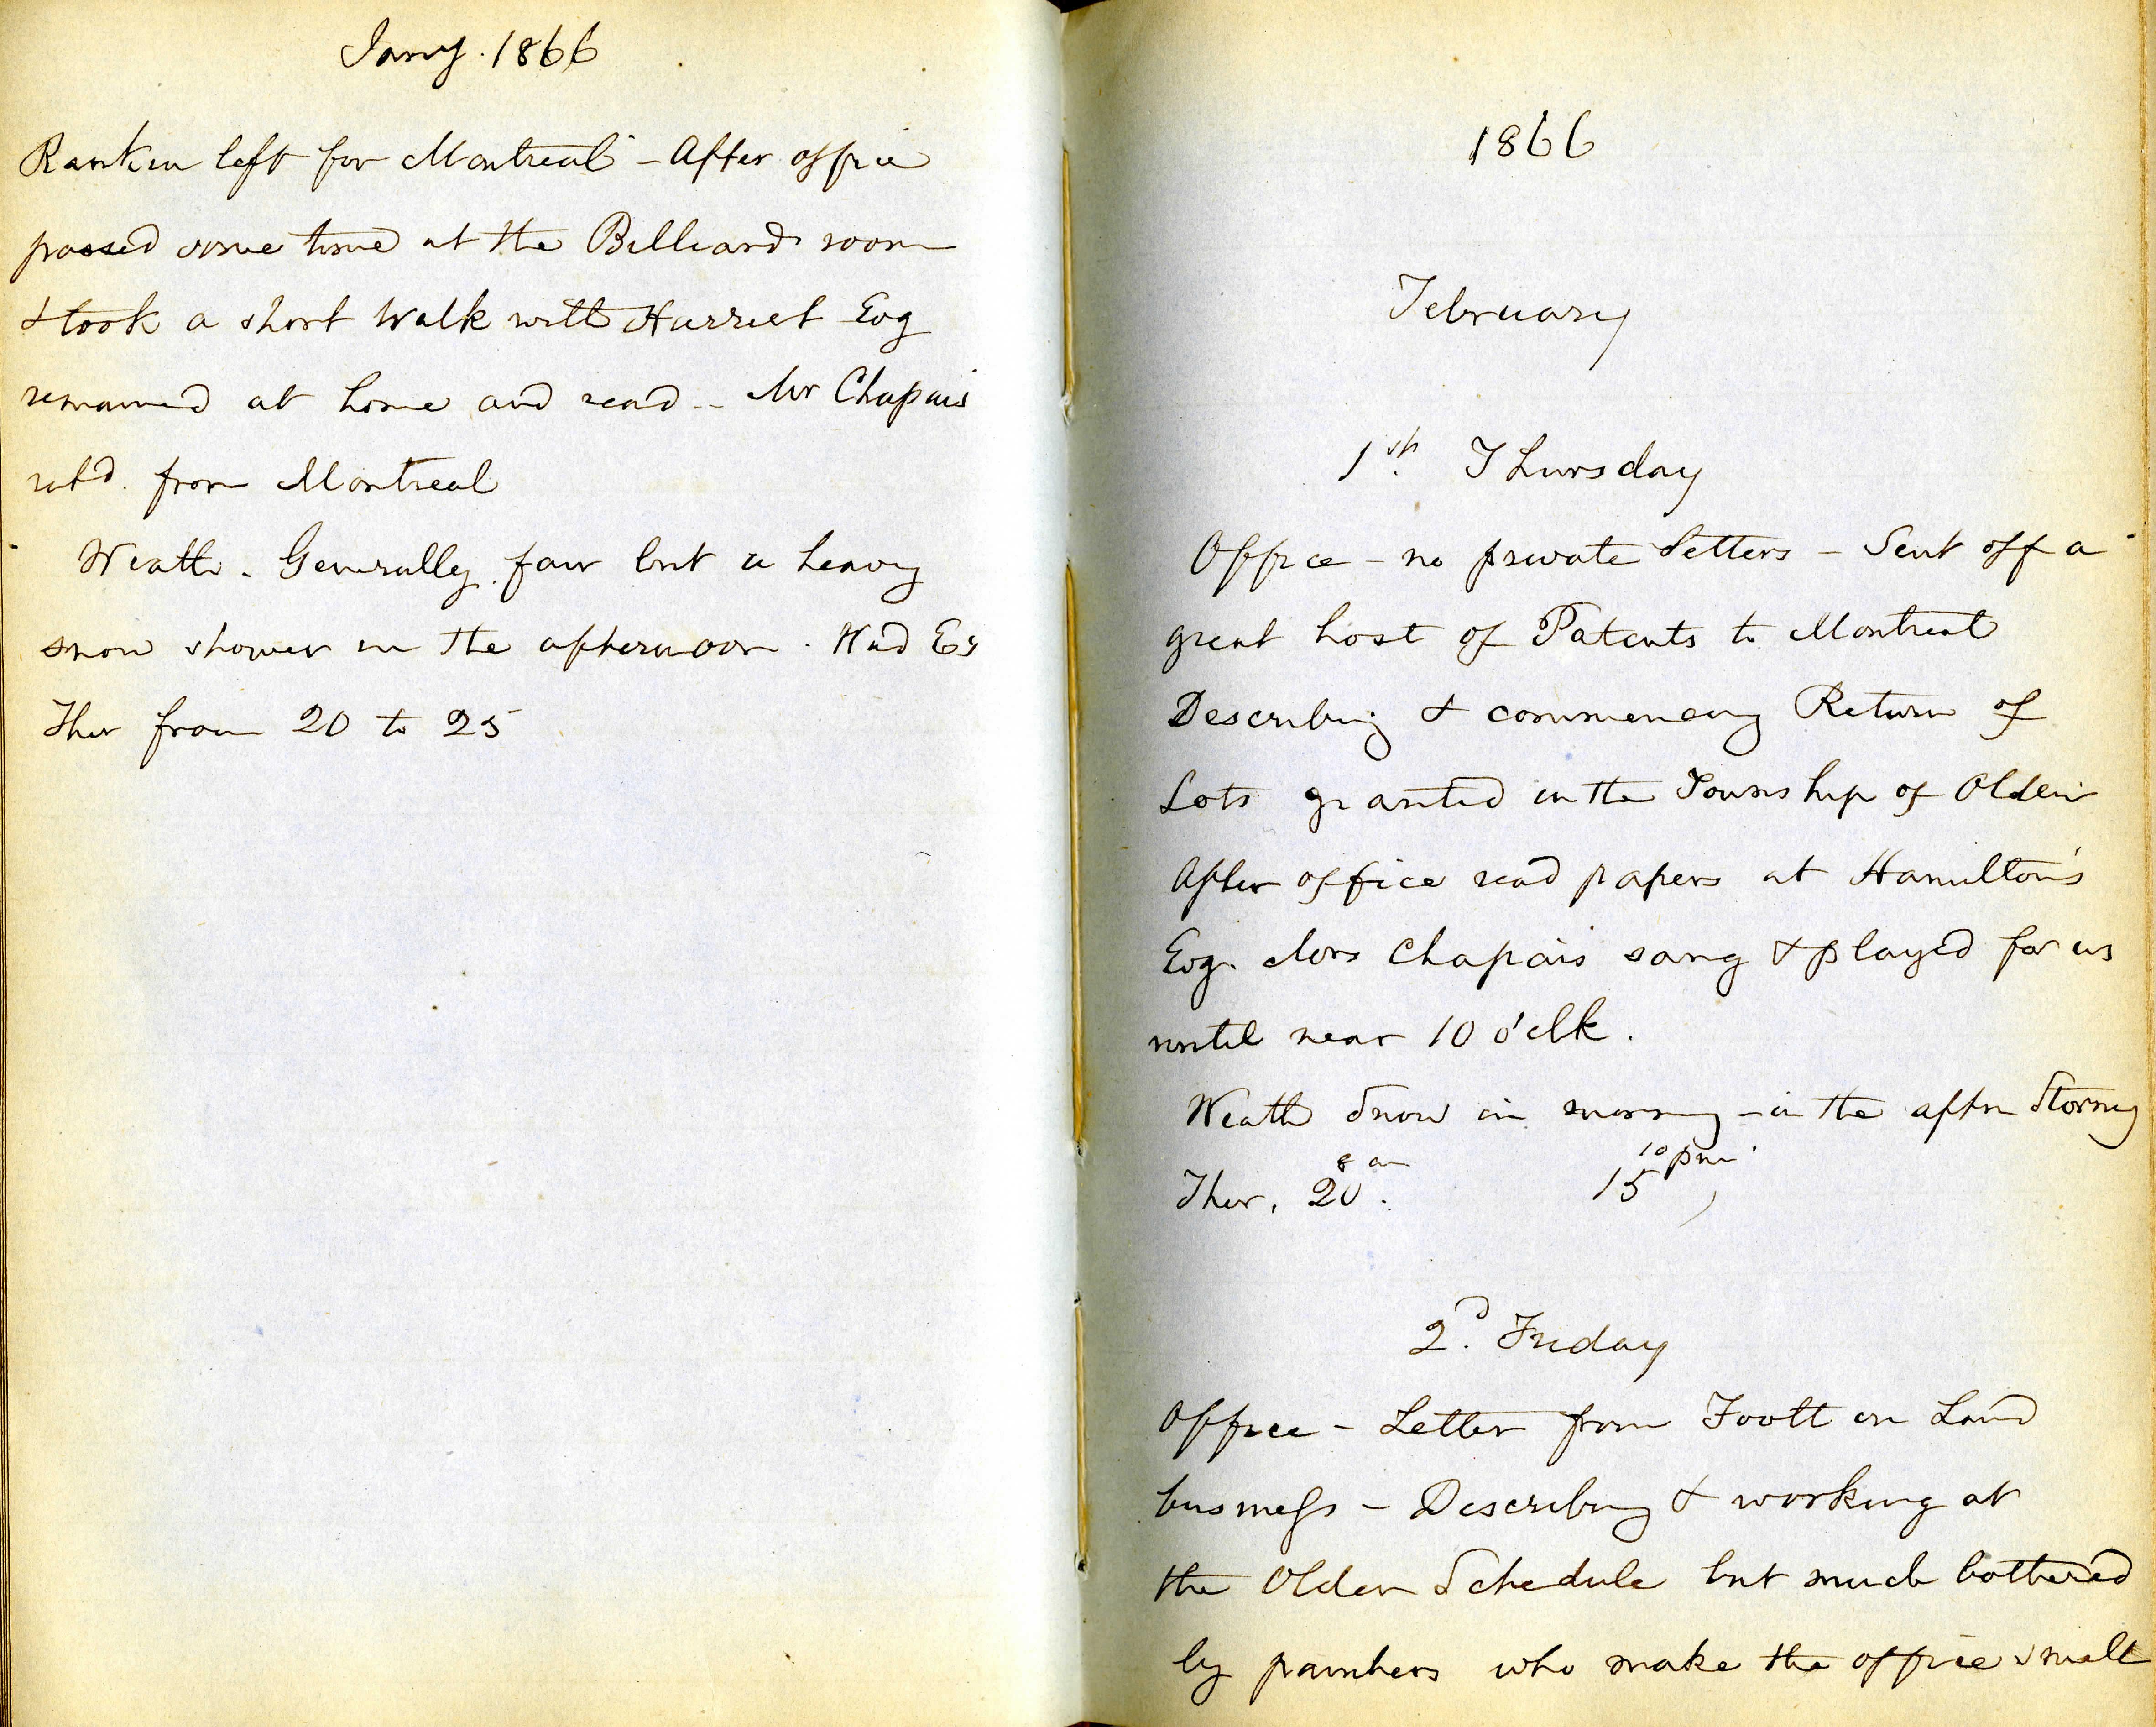 Jany. 1866
Rankin left for Montreal - After office
passed some time at the Billiard room
& took a short Walk with Harriet Evg
remained at home and read - Mr Chapais
retd. from Montreal
Weathr. Generally fair but a heavy
snow shower in the afternoon. Wind
Ther from 20 to 25
1866
February
1st. Thursday
Office - no private letters - Sent off a
great host of Patents to Montreal
Describing & commencing Return of
Lots granted in the Township of Olden
After office read papers at Hamilton's
Evg. Mrs Chapais sang & played for us
until near 10 o'clk.
Weath Snow in morning - in the aftn Stormy
8 am 10 pm
Ther. 20. 15
2d. Friday
Office - Letter from Foott on Land
business - Describing & working at
the Olden Schedule but much bothered
by painters who make the office smell